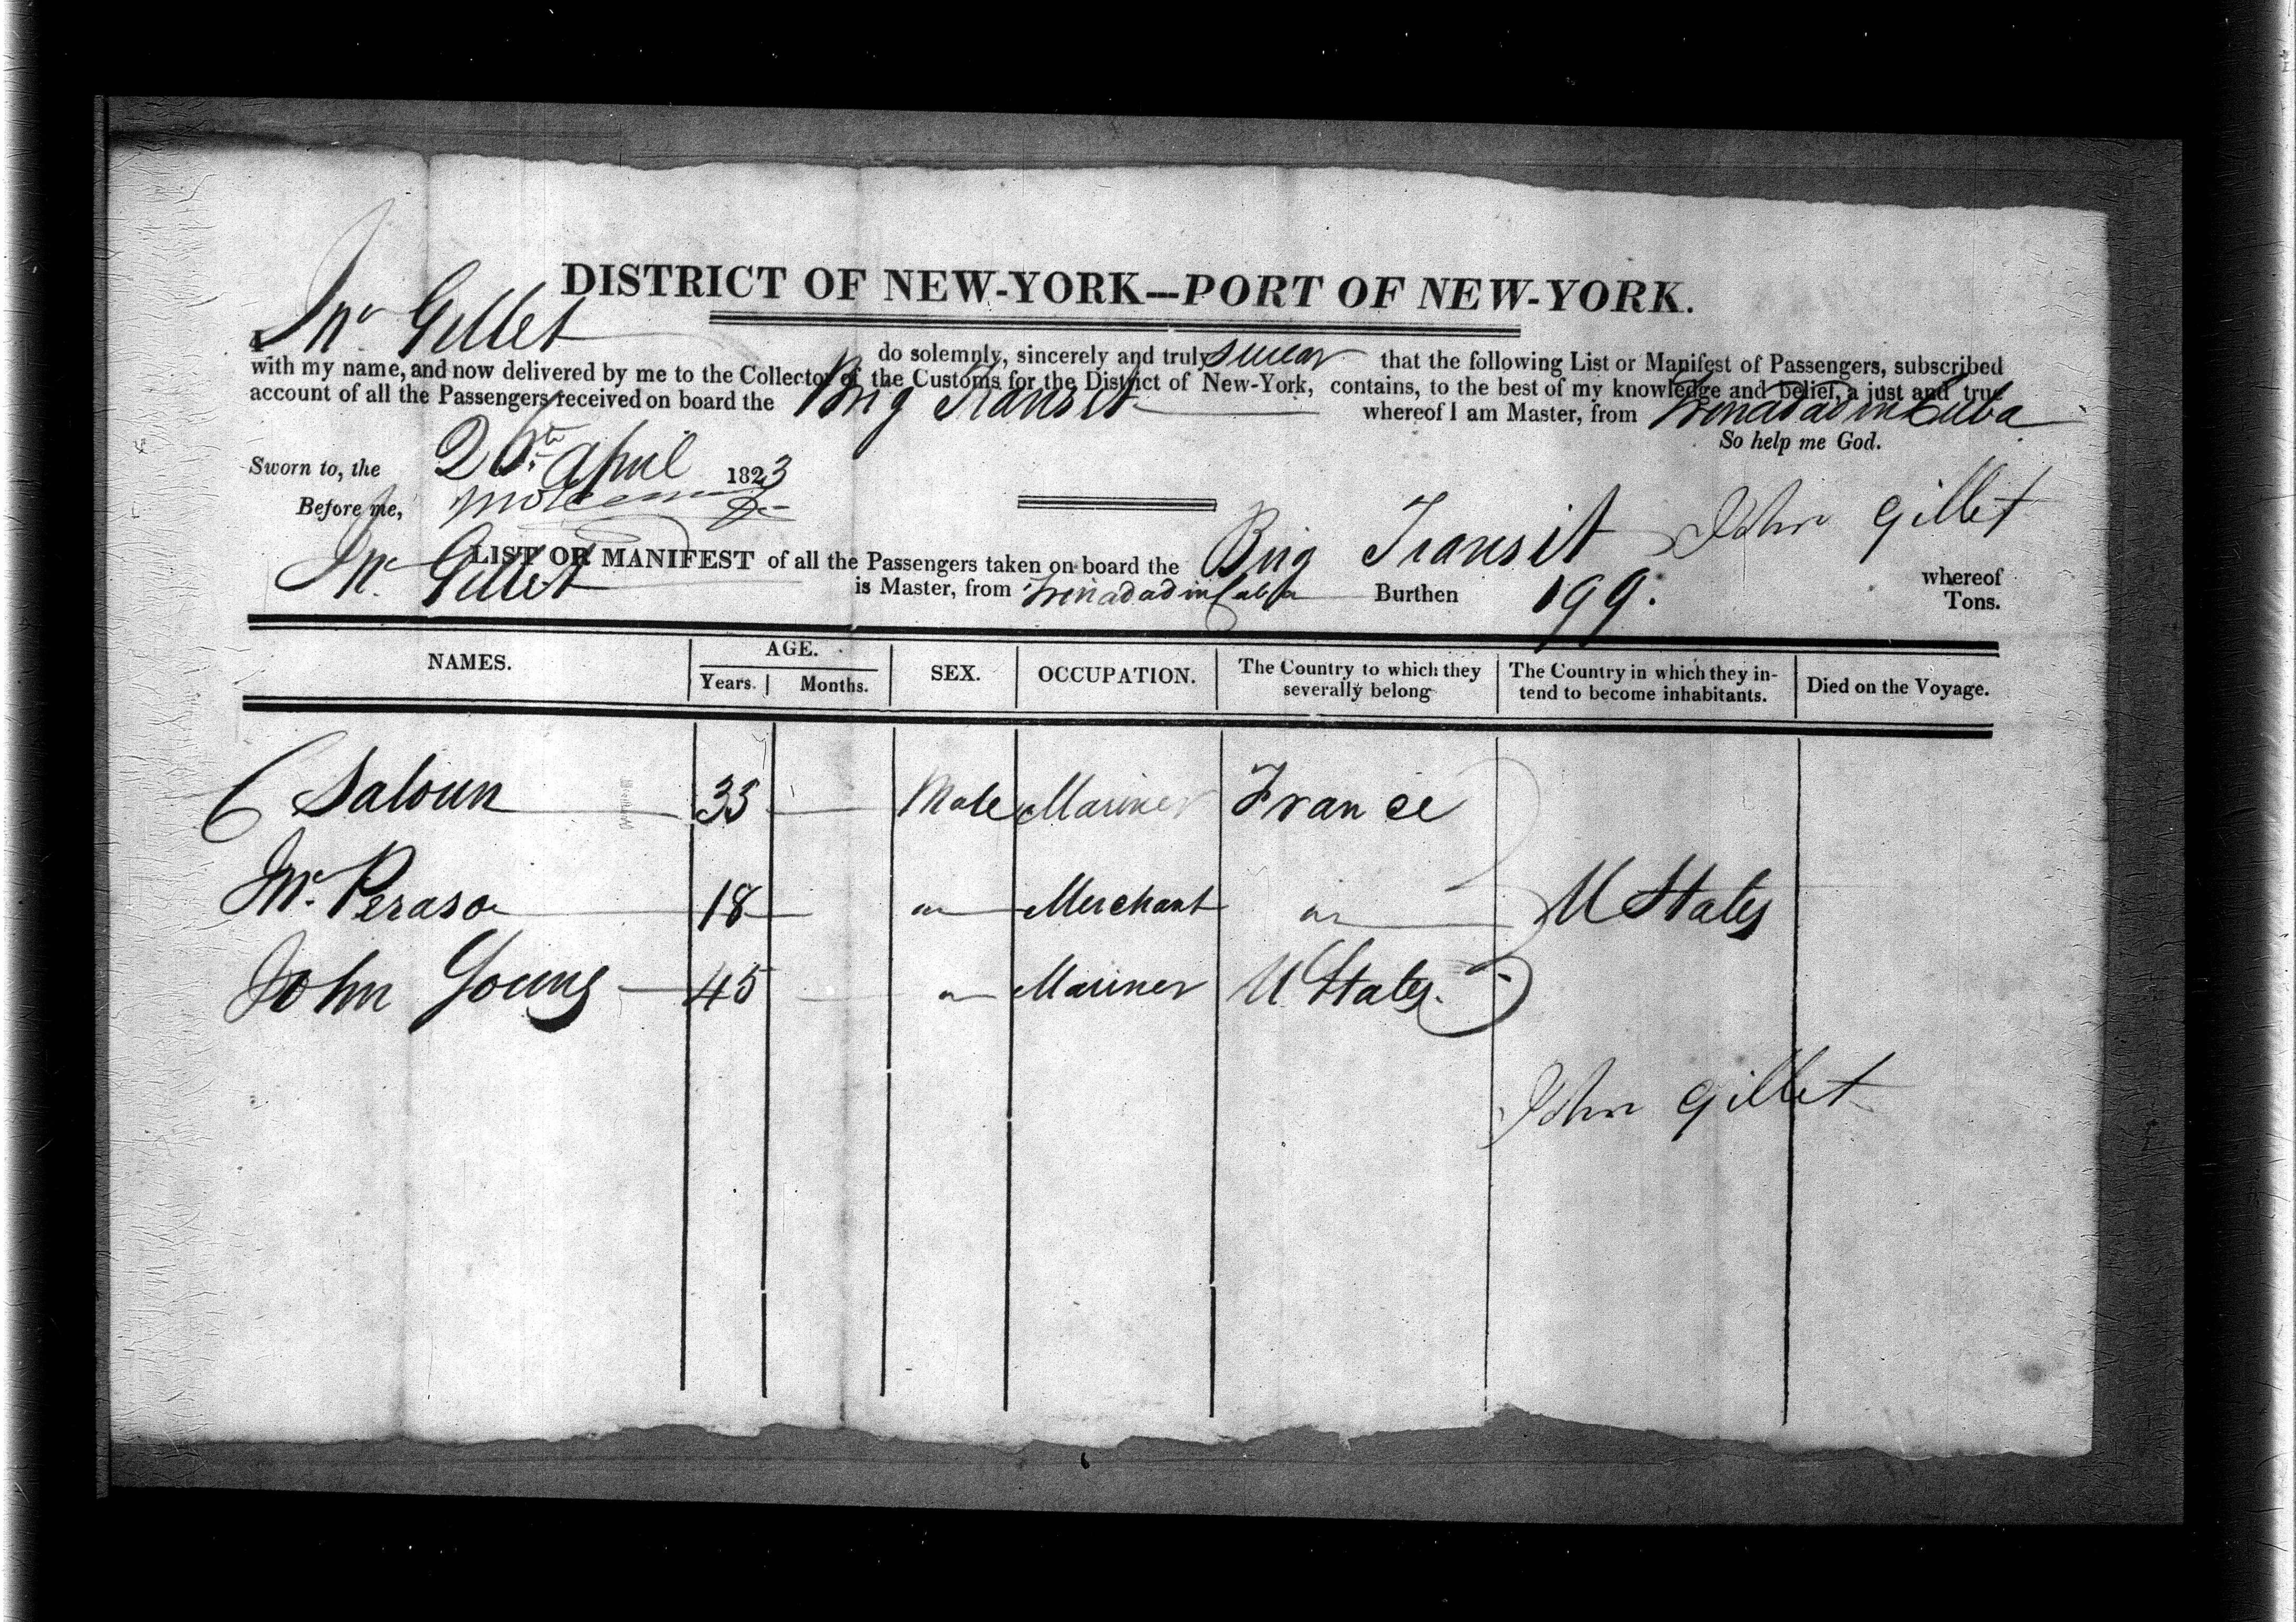 DISTRICT OF NEW-YORK—PORT OF NEW-YORK.
I, Jnº Gillet do solemnly, sincerely and truly swear that the following List or Manifest of Passengers, subscribed
with my name, and now delivered by me to the Collector of the Customs for the District of New-York, contains, to the best of my knowledge and belief, a just and true
account of all the Passengers received on board the Brig Transit whereof I am Master, from Trinadad in Cuba
So help me God.
Sworn to, the 26th April 1823
Before me,
John Gillet
LIST OR MANIFEST of all the Passengers taken on board the Brig Transit whereof
Jnº Gillet is Master, from Trinadad in Cuba Burthen 199. Tons.
NAMES. AGE. SEX. OCCUPATION. The Country to which they severally belong The Country in which they intend to become inhabitants. Died on the Voyage.
Years. Months.
C Saloun 33 Male Mariner France
Mr. Peraso 18 " Merchant " U States
John Young 45 " Mariner U States.
John Gillet